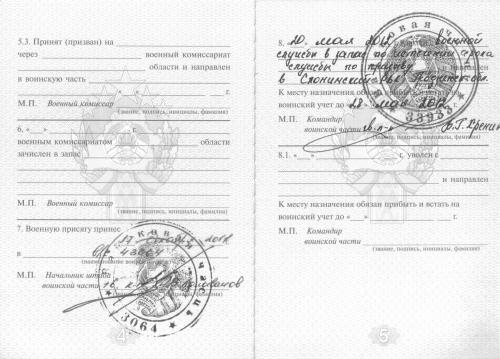 5.3. Принят (призван) на
через военный комиссариат
области и направлен
в воинскую часть
"__" г.
М.П. Военный комиссар
(звание, подпись, инициалы, фамилия)
6. «__» г.
военным комиссариатом области
зачислен в запас
М.П. Военный комиссар
(звание, подпись, инициалы, фамилия)
7. Военную присягу принес
в в/ч 43064
М.П. Начальник штаба
воинской части
3064
4
8. 20. мая 2012 военной
службы в запас по истечении срока
службы по призыву
в Слонимский РВК Гродненской
К месту назначения обязан прибыть и встать на
воинский учет до «28» мая 2012
М.П. Командир
воинской части
(звание, подпись, инициалы, фамилия)
8.1. «__» г. уволен с
и направлен
К месту назначения обязан прибыть и встать на
воинский учет до «__» г.
М.П. Командир
воинской части
(звание, подпись, инициалы, фамилия)
5